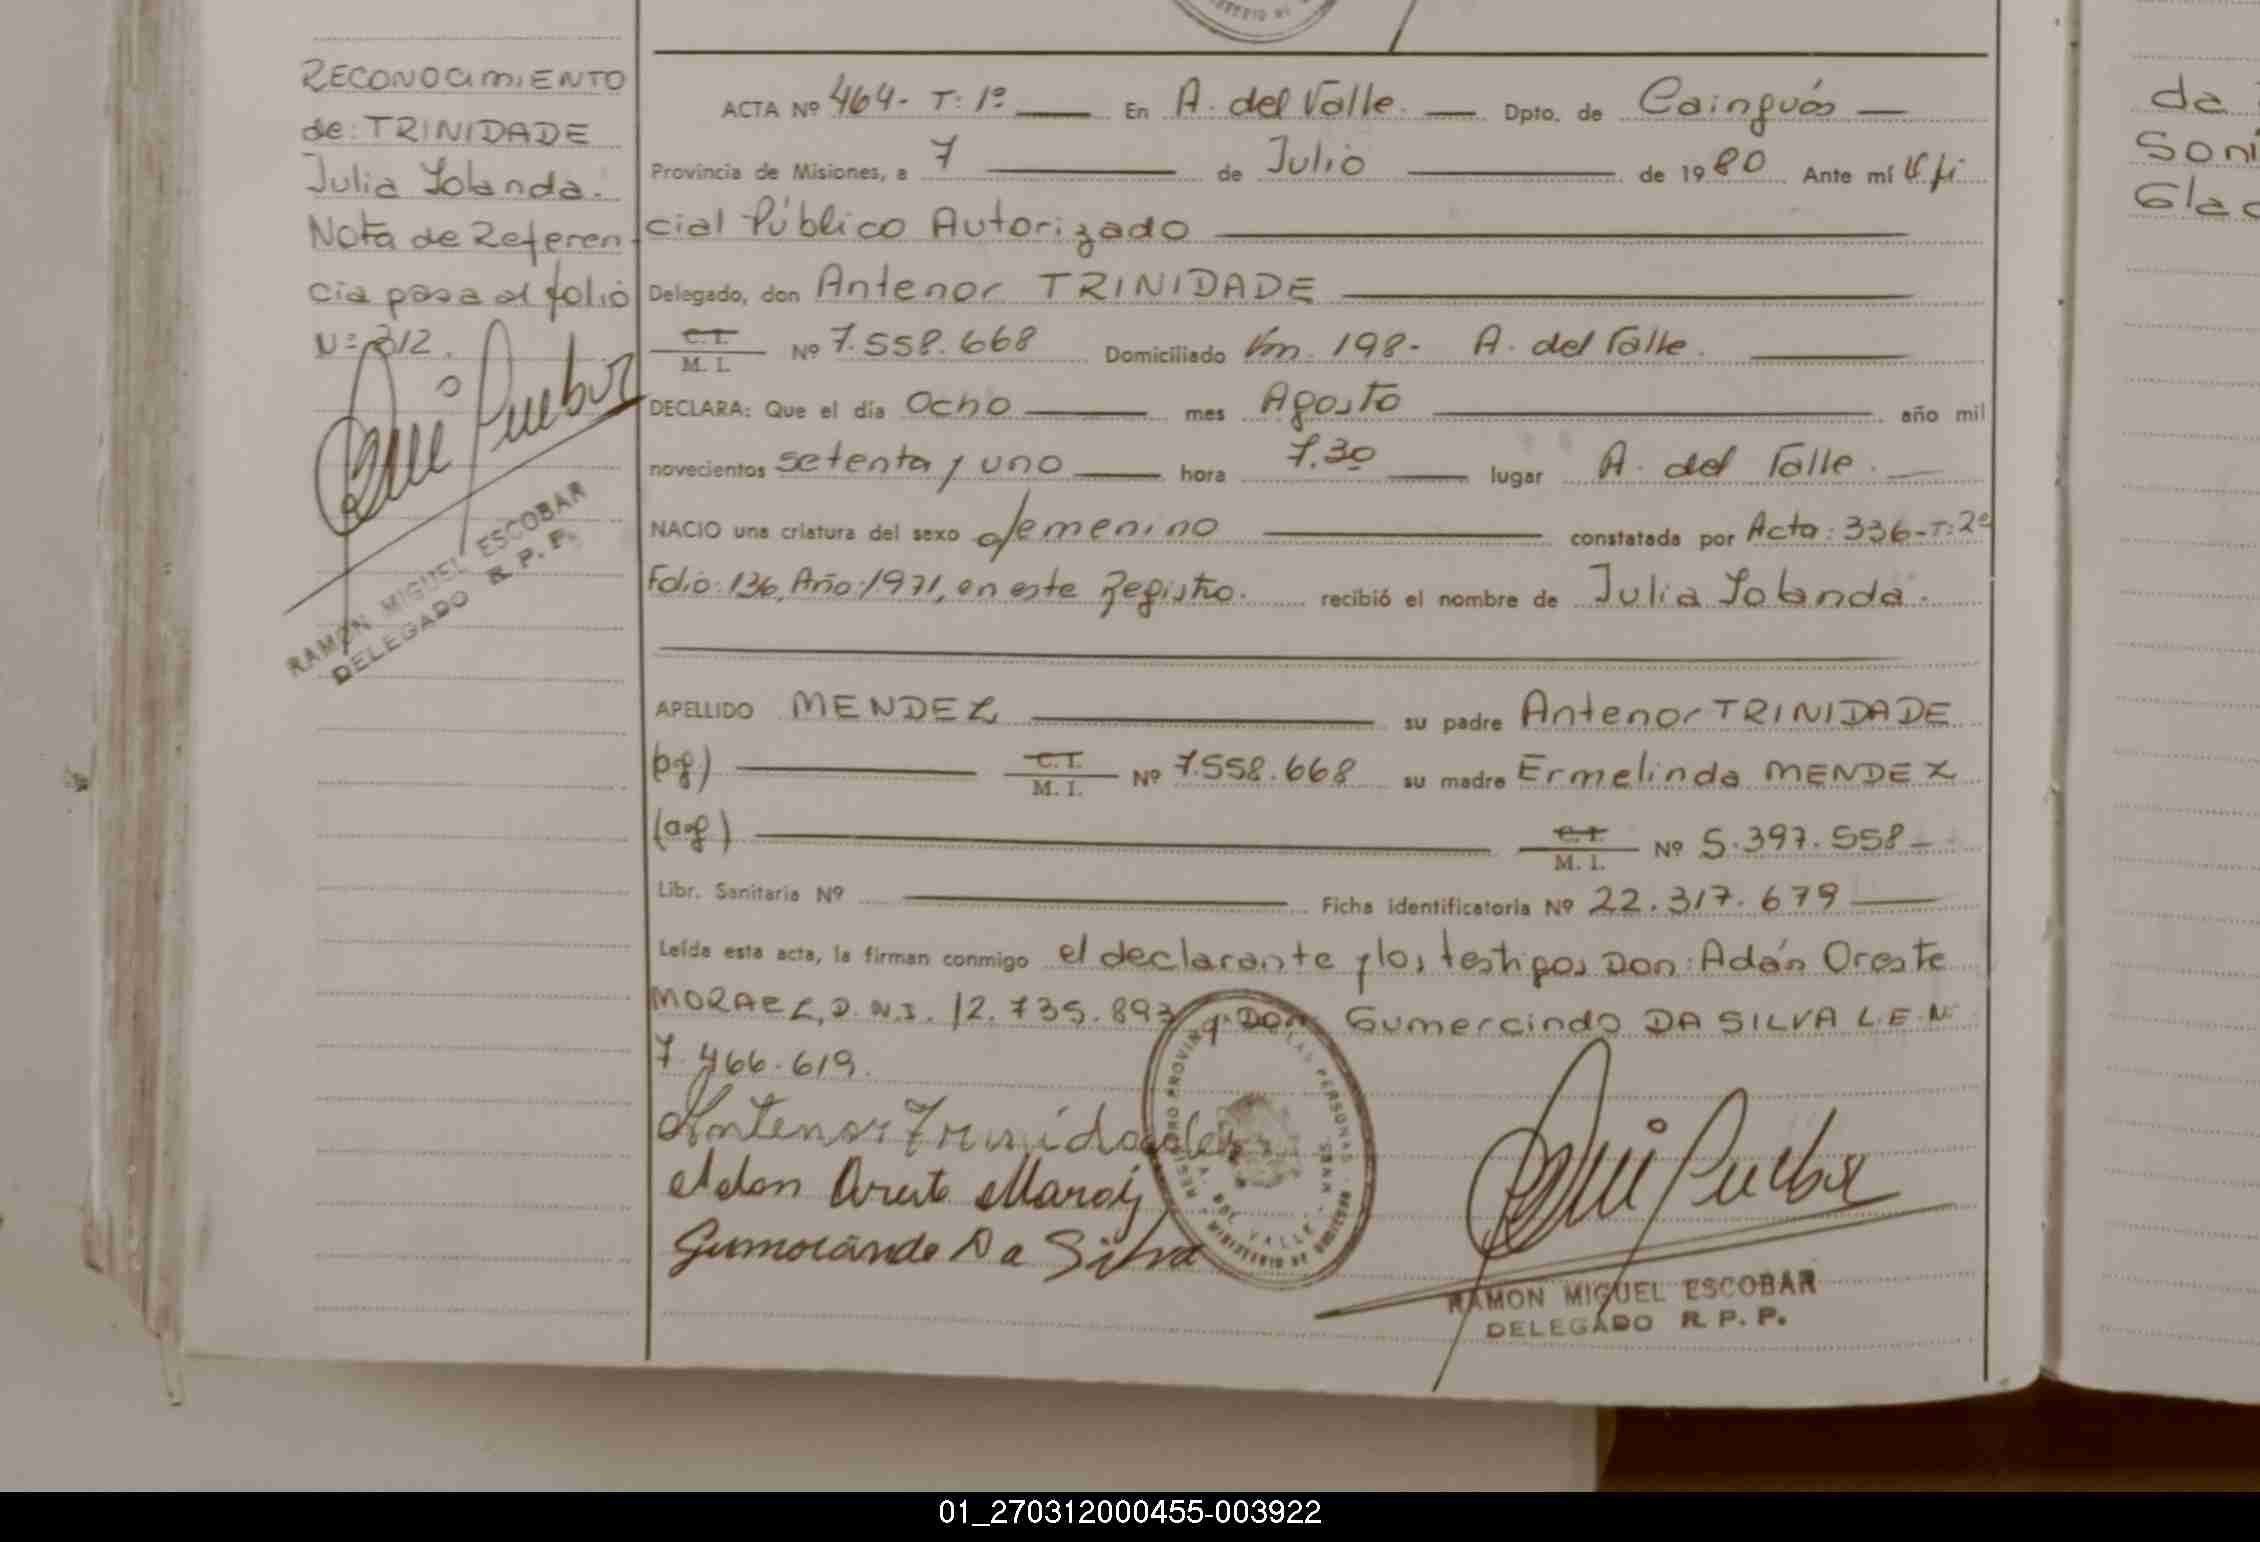 RECONOCIMIENTO
de: TRINIDADE
Julia Yolanda.
Nota de Referen-
cia pasa al folio
Nº 312.
RAMON MIGUEL ESCOBAR
DELEGADO R. P. P.
ACTA Nº 464- T: 1º En A. del Valle. Dpto. de Cainguás
Provincia de Misiones, a 7 de Julio de 1980 Ante mí Ofi
cial Público Autorizado
Delegado, don Antenor TRINIDADE
C. I. M. I. Nº 7.558.668 Domiciliado Km. 198- A. del Valle.
DECLARA: Que el día Ocho mes Agosto año mil
novecientos setenta y uno hora 7.30 lugar A. del Valle.
NACIO una criatura del sexo femenino constatada por Acta: 336-T: 2º
Folio: 136, Año: 1971, en este Registro. recibió el nombre de Julia Yolanda.
APELLIDO MENDEZ su padre Antenor TRINIDADE
C. I. M. I. Nº 7.558.668 su madre Ermelinda MENDEZ
C. I. M. I. Nº 5.397.558
Libr. Sanitaria Nº Ficha identificatoria Nº 22.317.679
Leída esta acta, la firman conmigo el declarante y los testigos Don: Adán Oreste
MORAEZ, D.N.I. 12.735.893 y Don Gumercindo DA SILVA L.E.Nº
7.466.619.
Antenor Trinidade
Adan Oreste Maraez
Gumercindo Da Silva
REGISTRO PROVINCIAL DE LAS PERSONAS
A. DEL VALLE - MNES.
MINISTERIO DE GOBIERNO
RAMON MIGUEL ESCOBAR
DELEGADO R. P. P.
da
Soni
Gla
01_270312000455-003922